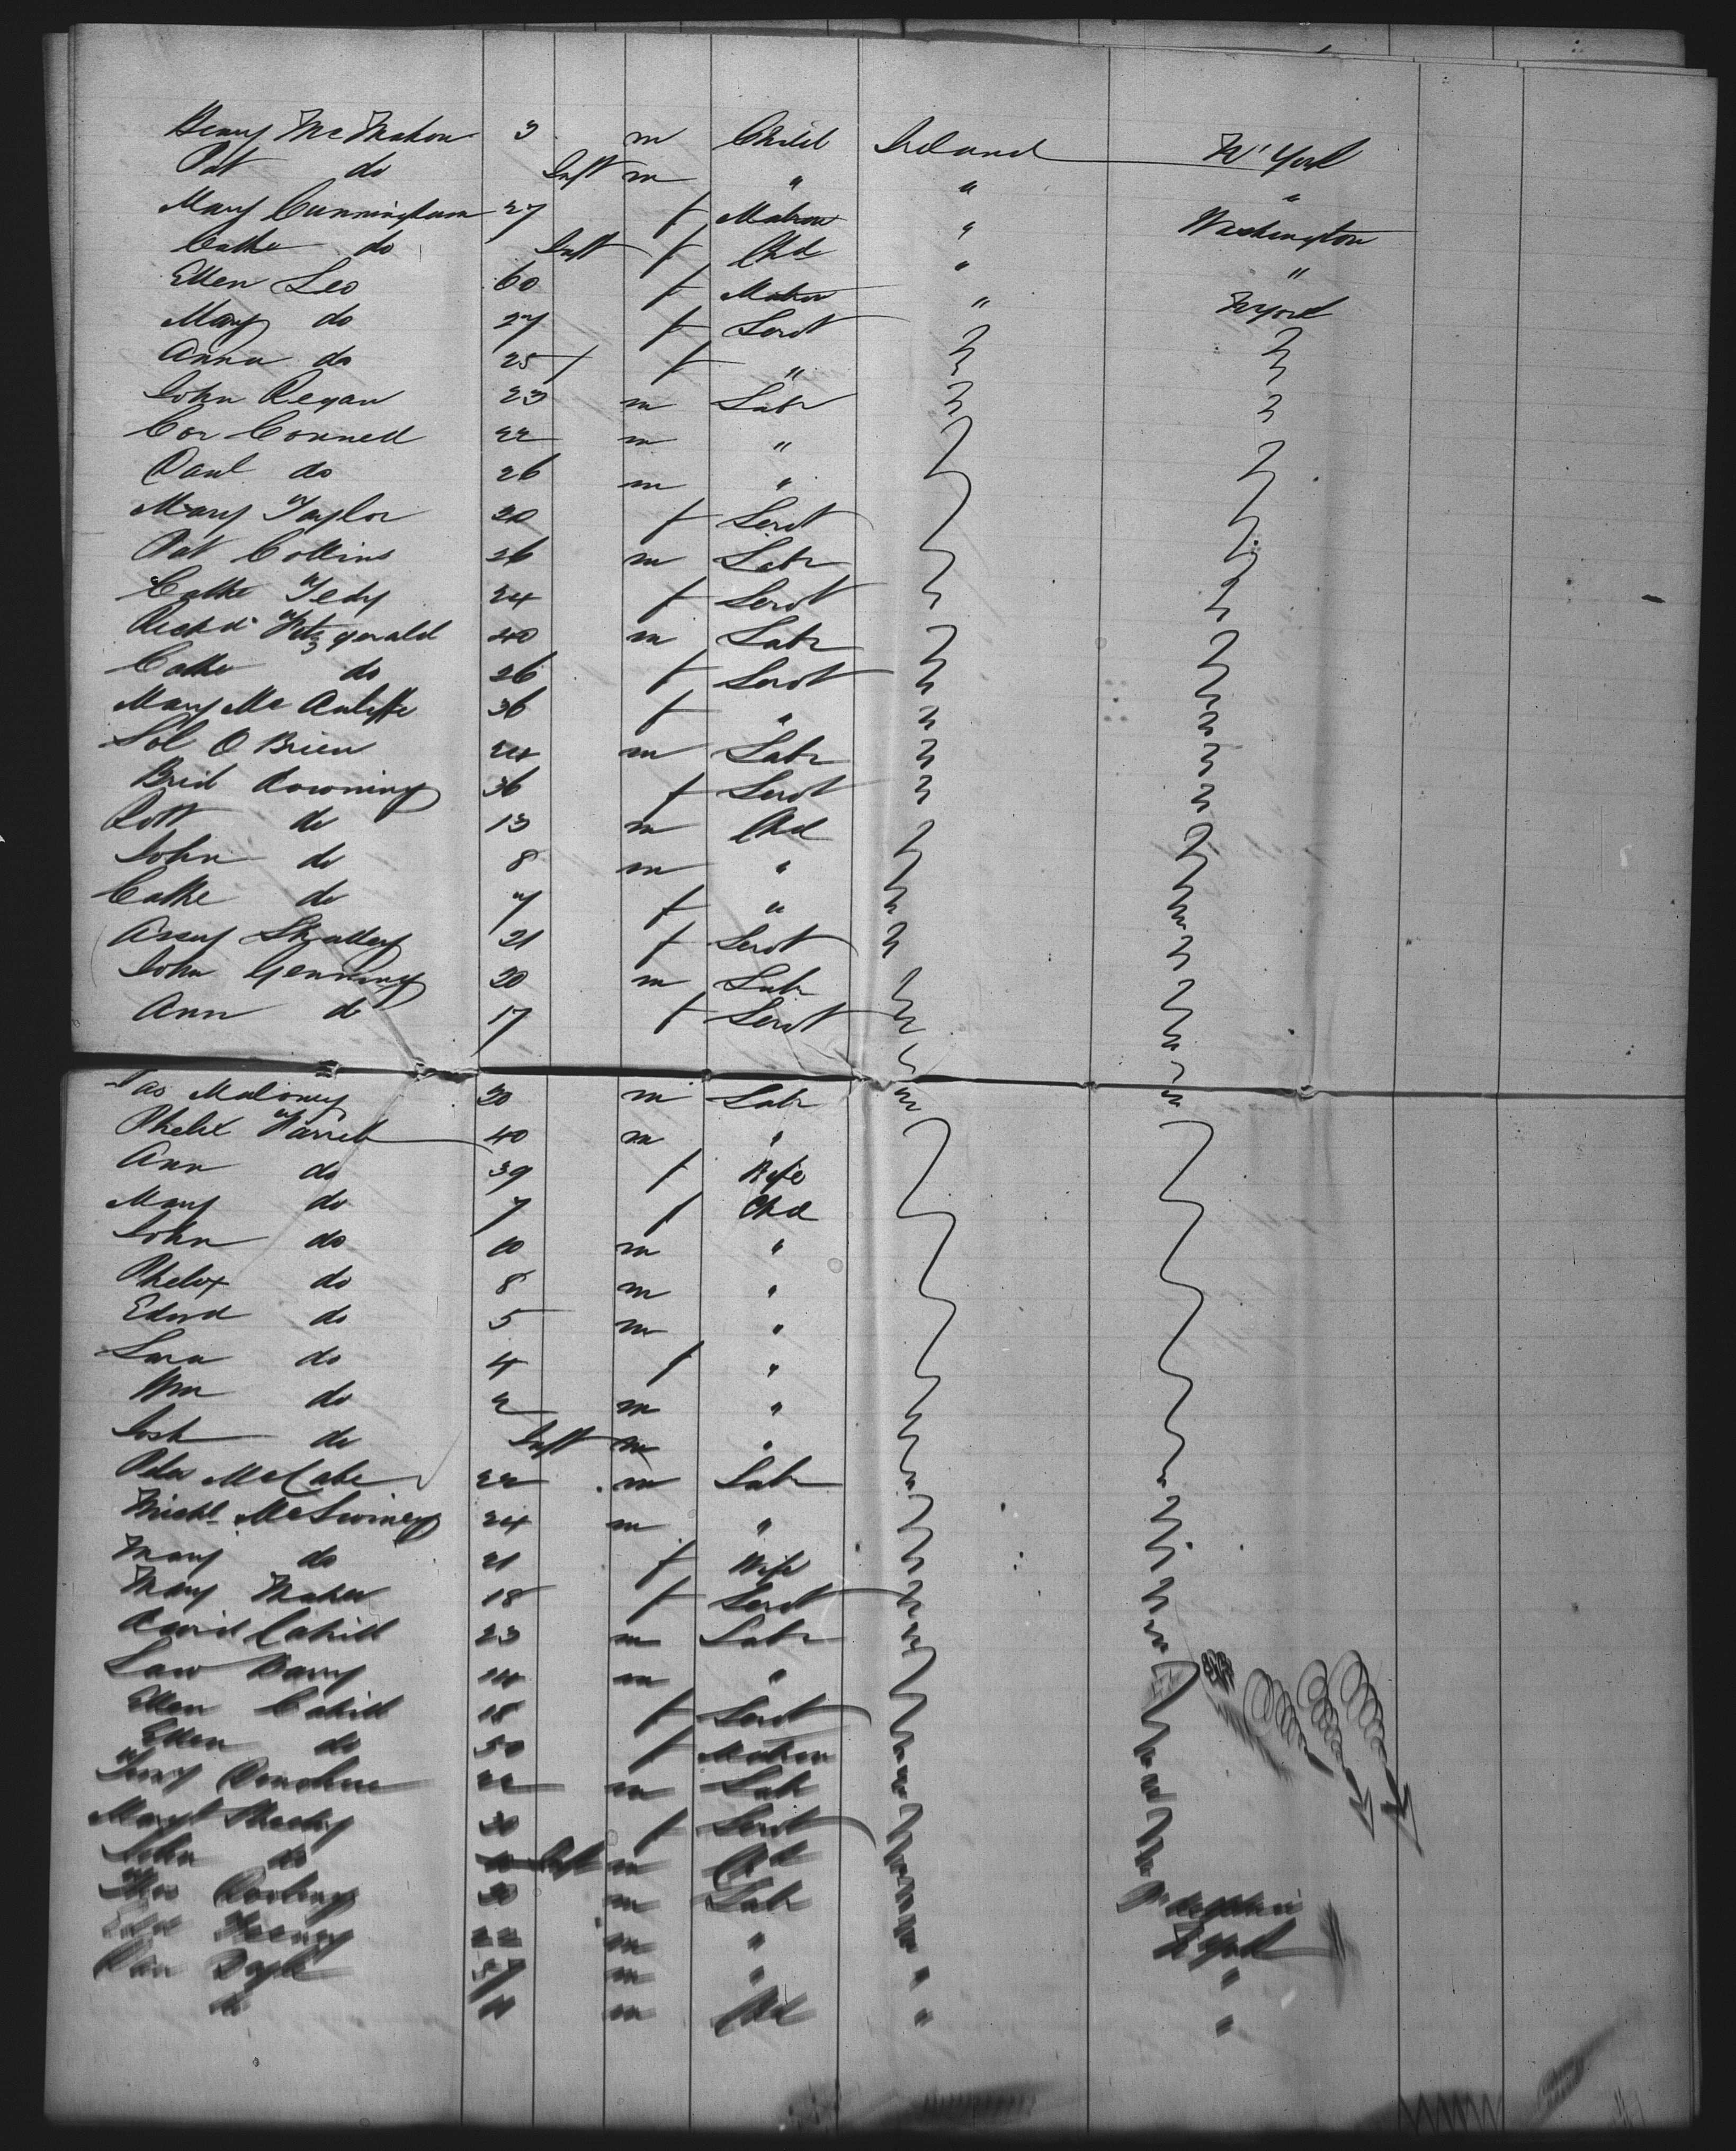 Henry McMahon 3 m Child Ireland N' York
Pat do Inft m " " "
Mary Cunningham 27 f Matron " Washington
Cathe do Inft f Chd " "
Ellen Leo 60 f Matron " N York
Mary do 27 f Servt
Anna do 25 f "
John Regan 23 m Labr
Cor Connell 22 m "
Danl do 26 m "
Mary Taylor 20 f Servt
Pat Collins 26 m Labr
Cathe Tedy 24 f Servt
Richd Fitzgerald 40 m Labr
Cathe do 26 f Servt
Mary McAuliffe 36 f "
Sol O Brien 24 m Labr
Brid Downing 36 f Servt
do 13 m Chd
John do 8 m "
Cathe do 7 f "
Shalley 21 f Servt
John Genning 20 m Labr
Ann do 17 f Servt
Jas Maloney 20 m Labr
Phelix Farrell 40 m "
Ann do 39 f Wife
Mary do 7 f Chd
John do 10 m "
Phelix do 8 m "
Edwd do 5 m "
Sara do 4 f "
Wm do 2 m "
Josh do Inft m "
Peter McCabe 22 m Labr
Michl McSwiney 24 m "
Mary do 21 f Wife
Mary Maher 18 f Servt
David Cahill 23 m Labr
Law Barry 14 m "
Ellen Cahill 18 f Servt
Ellen do 50 f Matron
Donohue 22 m Labr
Margt Sheehy 30 f Servt
John do Inft m Chd
Thos 30 m Labr
22 m " N York
Dan Doyle 37 m " " "
do 11 m Chd " "